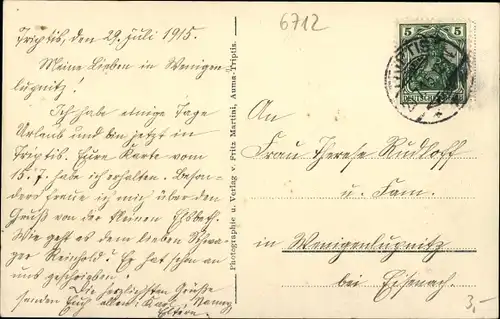 Triptis, den 29. Juli 1915.
Meine Lieben in Wenigen-
lupnitz!
Ich habe einige Tage
Urlaub und bin jetzt in
Triptis. Eure Karte vom
15.7. habe ich erhalten. Beson-
ders freue ich mich über den
Gruß von der kleinen Elsbeth.
Wie geht es dem lieben Schwa-
ger Reinhold? Er hat schon an
uns geschrieben.
Die herzlichsten Grüße
senden Euch allen: Karl,
Eltern.
Photographie u. Verlag v. Fritz Martini, Auma-Triptis.
6712
5 5
TRIPTIS
An
Frau Therese Rudloff
u. Fam.
in Wenigenlupnitz
bei Eisenach.
3,-